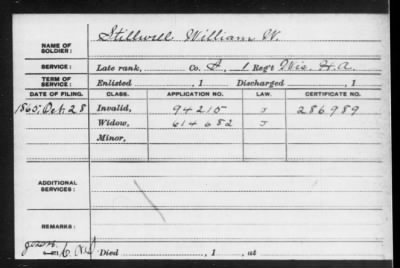 NAME OF SOLDIER: Stillwell William W.
SERVICE: Late rank, Co. , 1 Reg't Wis. H.A.
TERM OF SERVICE: Enlisted , 1 Discharged , 1
DATE OF FILING. CLASS. APPLICATION NO. LAW. CERTIFICATE NO.
1865, Oct. 28 Invalid, 94215 J 286989
Widow, 614682 J
Minor,
ADDITIONAL SERVICES:
REMARKS:
Died , 1 , at